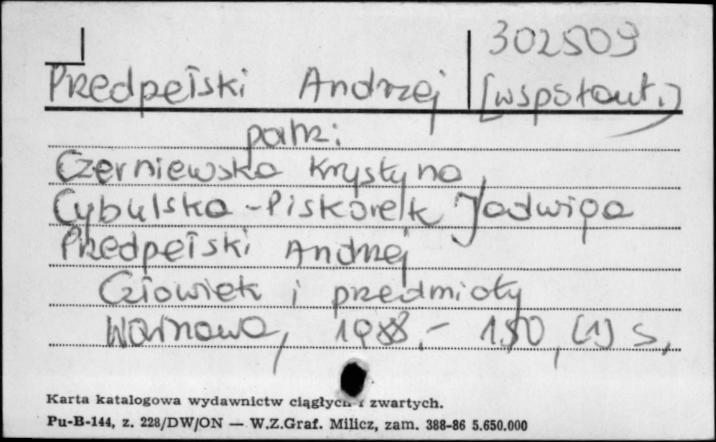 302509
Przedpełski Andrzej [współaut.]
patrz:
Czerniewska Krystyna,
Cybulska-Piskorek Jadwiga
Przedpełski Andrzej
Człowiek i przedmioty
Warszawa, 1988.- 150, [1] s.
Karta katalogowa wydawnictw ciągłych i zwartych.
Pu-B-144, z. 228/DW/ON — W.Z.Graf. Milicz, zam. 388-86 5.650.000